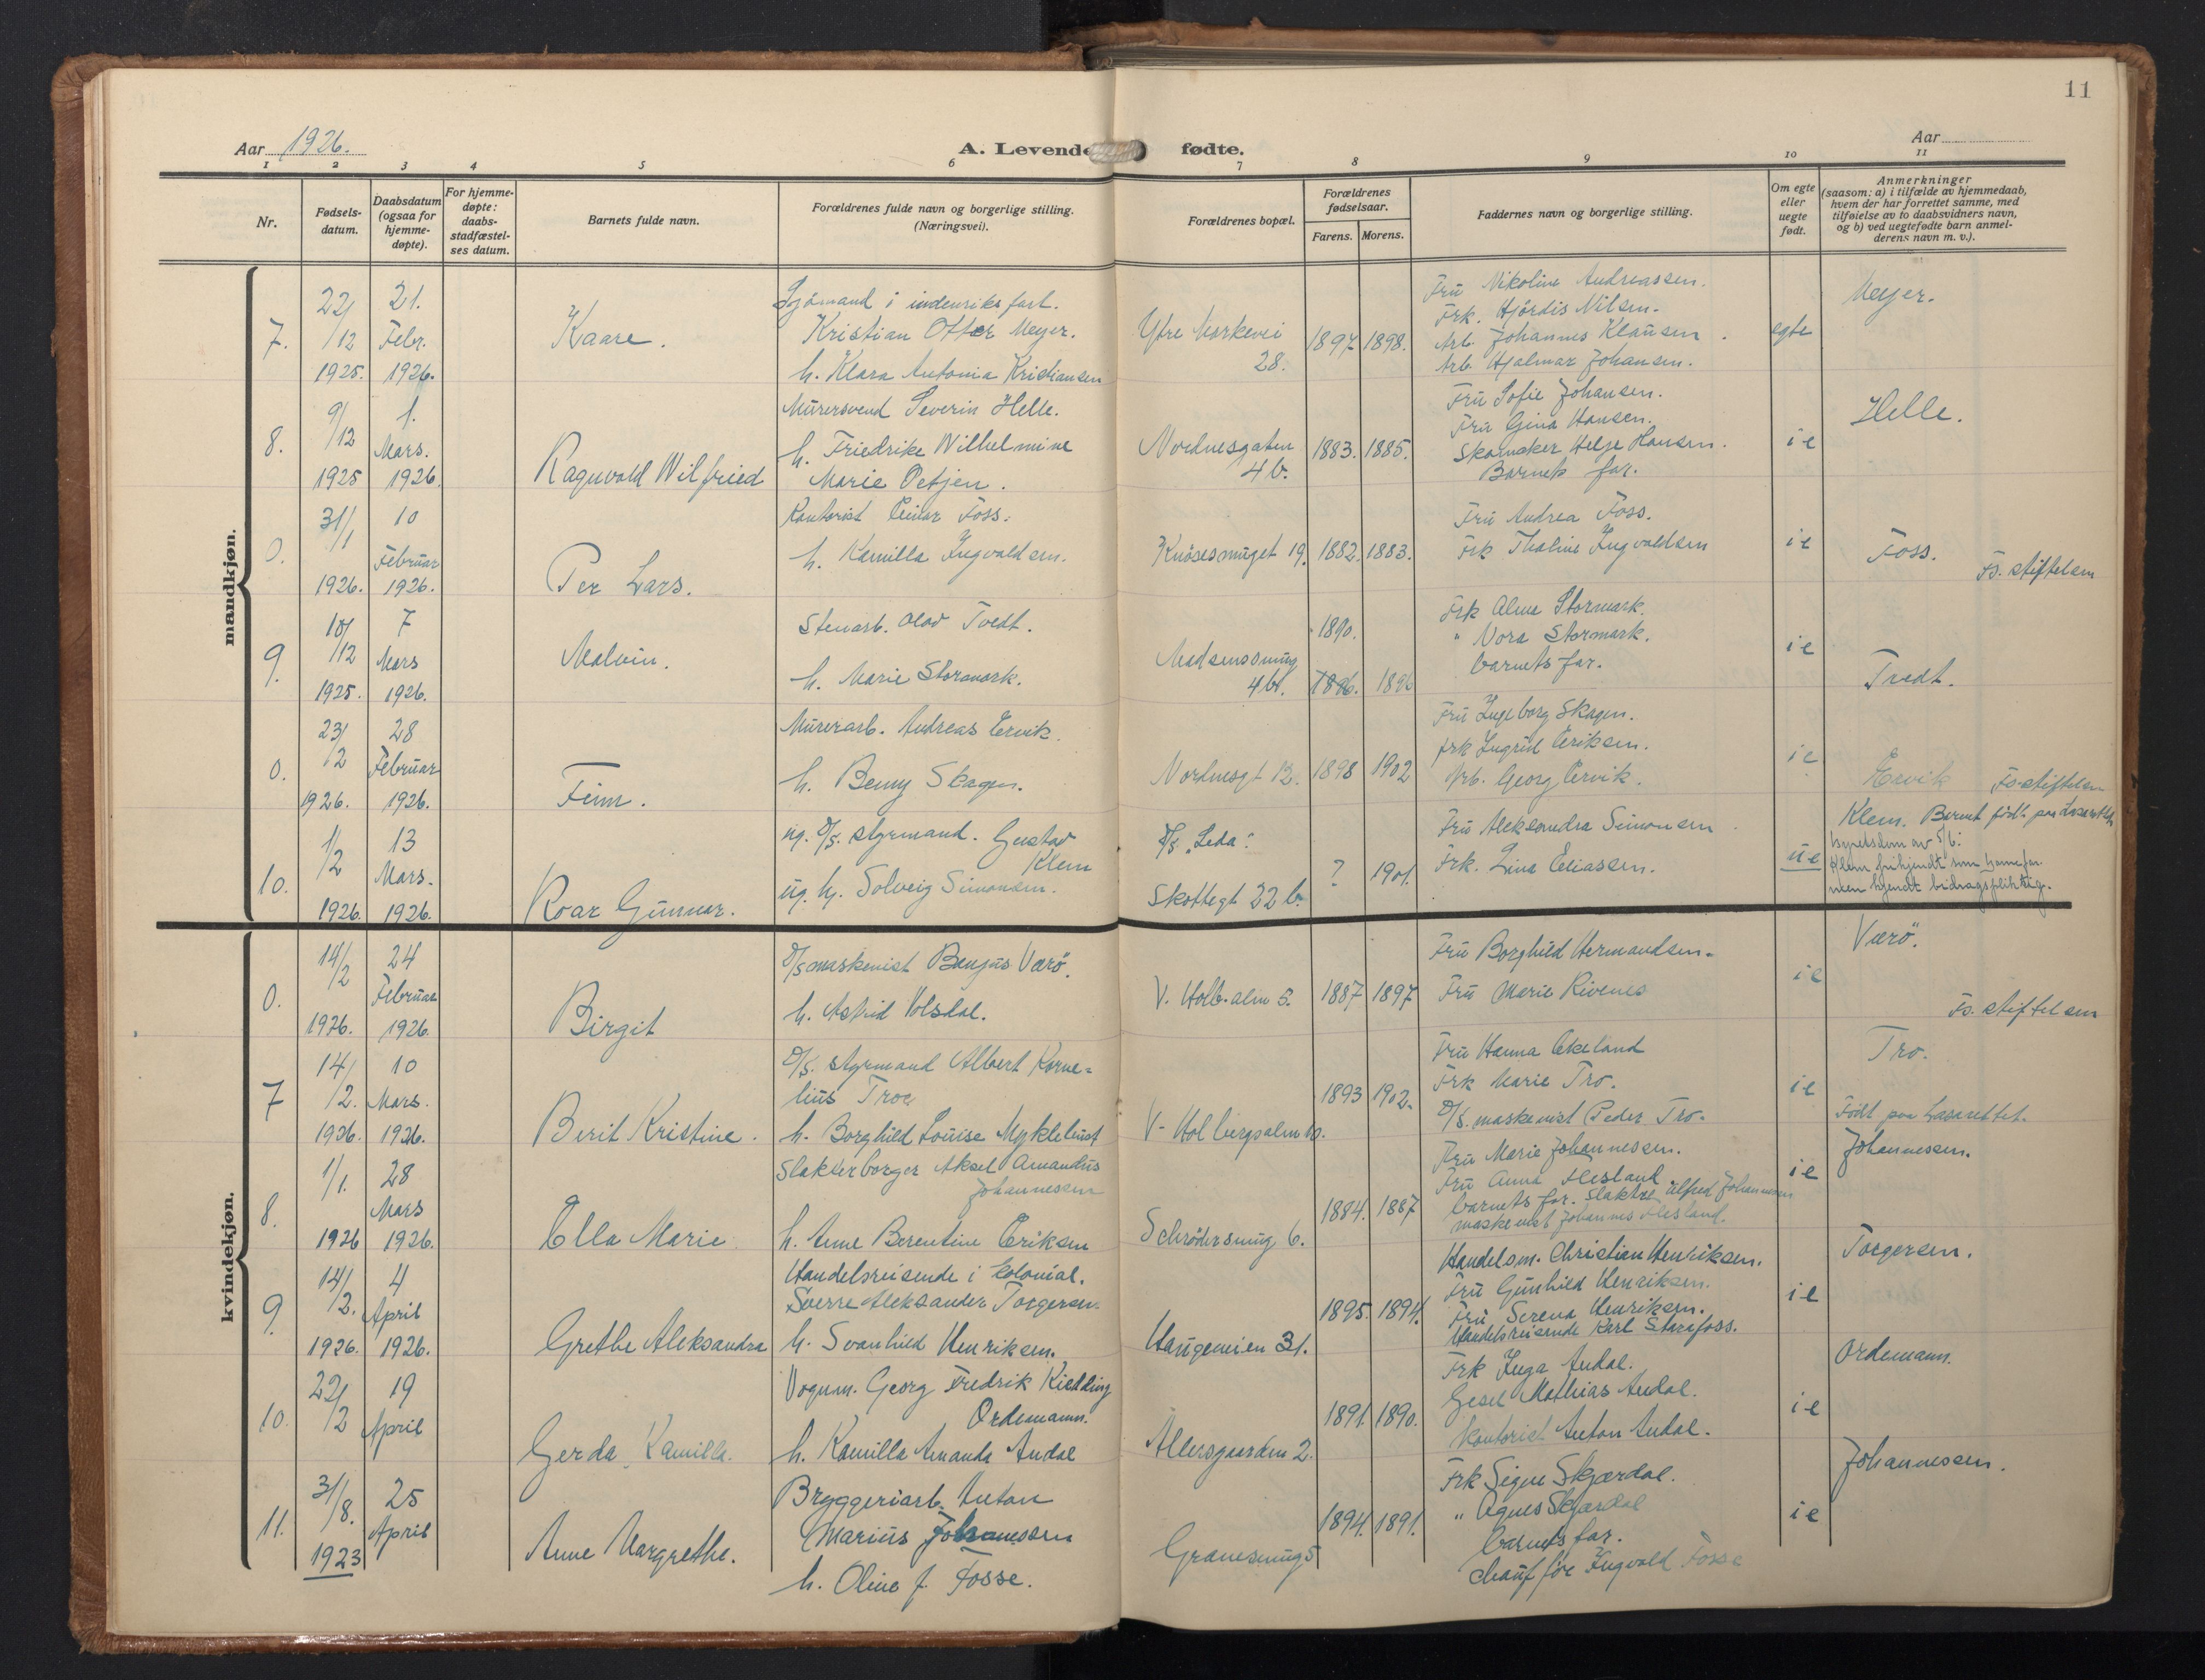 11
Aar 1926.
A. Levende fødte.
Aar
1 2 3 4 5 6 7 8 9 10 11
Nr.
Fødsels-
datum.
Daabsdatum
(ogsaa for
hjemme-
døpte).
For hjemme-
døpte:
daabs-
stadfæstel-
ses datum.
Barnets fulde navn.
Forældrenes fulde navn og borgerlige stilling.
(Næringsvei).
Forældrenes bopæl.
Forældrenes
fødselsaar.
Farens. Morens.
Faddernes navn og borgerlige stilling.
Om egte
eller
uegte
født.
Anmerkninger
(saasom: a) i tilfælde av hjemmedaab,
hvem der har forrettet samme, med
tilføielse av to daabsvidners navn,
og b) ved uegtefødte barn anmel-
derens navn m. v.).
mandkjøn.
7.
22/12
1925.
21.
Febr.
1926.
Kaare.
Sjömand i indenriks fart.
Kristian Otter Meyer.
h. Klara Antonia Kristiansen
Ytre Markevei
28.
1897 1898.
Fru Nikoline Andreassen.
Frk. Hjördis Nilsen.
Arb. Johannes Klausen.
Arb. Hjalmar Johansen.
egte
Meyer.
8.
9/12
1925
1.
Mars.
1926.
Ragnvald Wilfried
Murersvend Severin Helle.
h. Friedrike Wilhelmine
Marie Oetjen.
Nordnesgaten
4b.
1883. 1885.
Fru Sofie Johansen.
Fru Gina Hansen.
Skomaker Helge Hansen.
Barnets far.
i e
Helle.
0.
31/1
1926.
10
Februar
1926.
Per Lars.
Kontorist Einar Foss.
h. Kamilla Ingvaldsen.
Knösesmuget 19.
1882. 1883.
Fru Andrea Foss.
Frk Thaline Ingvaldsen
i e
Foss.
Fs. stiftelsen
9.
10/12
1925.
7
Mars
1926.
Malvin.
Stenarb. Olav Tvedt.
h. Marie Stormark.
Madsensmug
4b.
1890.
1896. 1896
Frk Alma Stormark.
" Nora Stormark.
barnets far.
i e
Tvedt.
0.
23/2
1926.
28
Februar
1926.
Finn.
Murerarb. Andreas Ervik.
h. Benny Skagen.
Nordnesgt 12.
1898 1902
Fru Ingeborg Skagen.
frk Ingrid Eriksen.
Arb. Georg Ervik.
i e
Ervik
Fs-stiftelsen
10.
1/2
1926.
13
Mars.
1926.
Roar Gunnar.
ug. D/S. styrmand. Gustav
Klem
ug. hj. Solveig Simonsen.
D/S. "Leda".
Skottegt 22 b.
? 1901.
Fru Aleksandra Simonsen
Frk. Lina Eliassen.
u e
Klem. Barnet födt paa Lasarettet
byretsdom av 5/6:
Klem frikjendt som barnefar
men kjendt bidragspliktig.
kvindekjøn.
0.
14/2
1926.
24
Februar
1926.
Birgit
D/S maskinist Bangus Værö.
h. Astrid Volsdal.
V. Holb. alm 5.
1887 1897
Fru Borghild Hermandsen.
Fru Marie Rivenes
i e
Værö.
Fs. stiftelsen
7
14/2.
1926.
10
Mars.
1926.
Berit Kristine.
D/S. styrmand Albert Korne-
lius Troe
h. Borghild Louise Myklebust
V- Holbergsalm 10.
1893 1902.
Fru Hanna Økeland
Frk Marie Tro.
D/S. maskinist Peder Tro.
i e
Tro.
Födt paa Lasarettet.
8.
1/1.
1926
28
Mars
1926.
Ella Marie
Slakterborger Aksel Amandus
Johannesen
h. Anne Berentine Eriksen
Schrödersmug 6.
1884. 1887
Fru Marie Johannessen.
Fru Anna Flesland
barnets far. Slakter Alfred Johannessen
maskinist Johannes Flesland.
i e
Johannessen.
9.
14/2.
1926.
4
April
1926.
Grethe Aleksandra
Handelsreisende i kolonial.
Sverre Aleksander Torgersen.
h. Svanhild Henriksen.
Haugeveien 31.
1895. 1894.
Handelsm. Christian Henriksen.
Fru Gunhild Henriksen.
Fru Serena Henriksen.
Handelsreisende Karl Starefoss.
i e
Torgersen.
10.
22/2
19
April
Gerda Kamilla.
Vognm. Georg Fredrik Kiedding
Ordemann.
h. Kamilla Amanda Andal
Allersgaarden 2.
1891. 1890.
Frk Inga Andal.
Gesel Mathias Andal.
Kontorist Anton Andal.
i e
Ordemann.
11.
31/8.
1923
25
April
Anne Margrethe.
Bryggeriarb. Anton
Marius Johannessen
h. Oline f. Fosse.
Granesmug 5
1894. 1891.
Frk Signe Skjærdal.
" Agnes Skjærdal
barnets far.
chauffør Ingvald Fosse
i e
Johannessen.